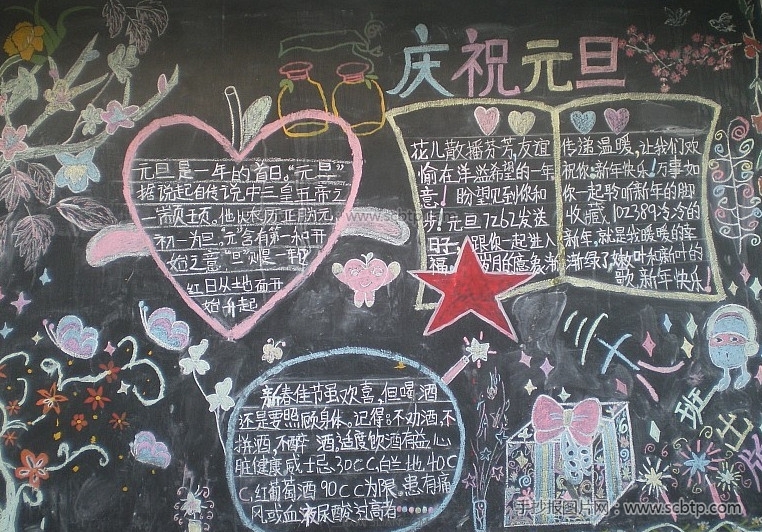 庆祝元旦
元旦是一年的首日,"元旦"
据说起自传说中三皇五帝之
一颛顼,他以农历正月为元,
初一为旦。"元"含有第一和开
始之意,"旦"则是一轮
红日从地面开
始升起
花儿散播芬芳,友谊
愉在洋溢希望的一年
意!盼望见到你和
步!元旦7262发送
旺
跟你一起进入
福
岁月的意象
传递温暖,让我们欢
祝你:新年快乐!万事如
你一起聆听新年的脚
收藏,102389冷冷的
新年,就是我暖暖的幸
渐渐绿了嫩叶和新叶的
歌,新年快乐!
新春佳节虽欢喜,但喝酒
还是要照顾身体。记得:不劝酒,不
拼酒,不醉酒,适度饮酒有益心
脏健康,威士忌30CC,白兰地40C
C,红葡萄酒90CC为限。患有痛
风或血液尿酸过高者……
班
出
版
www.scbtp.com
www.scbtp.com
www.scbtp.com
手抄报图片网:www.scbtp.com